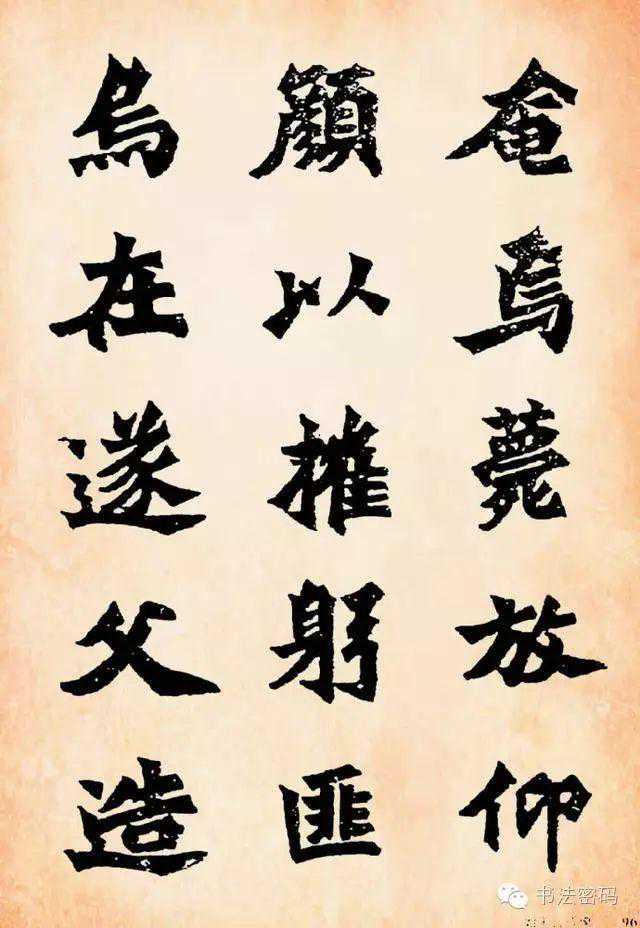 奄焉薨放仰
顔以摧躬匪
烏在遂父造
书法密码
96